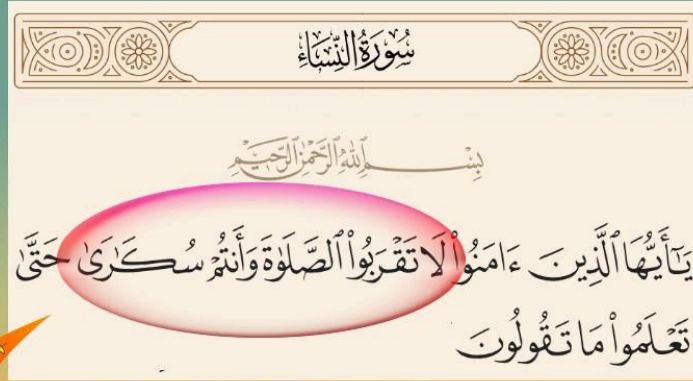 سُورَةُ النِّسَاءِ
بِسْمِ ٱللَّهِ ٱلرَّحْمَٰنِ ٱلرَّحِيمِ
يَٰٓأَيُّهَا ٱلَّذِينَ ءَامَنُوا۟ لَا تَقْرَبُوا۟ ٱلصَّلَوٰةَ وَأَنتُمْ سُكَٰرَىٰ حَتَّىٰ
تَعْلَمُوا۟ مَا تَقُولُونَ